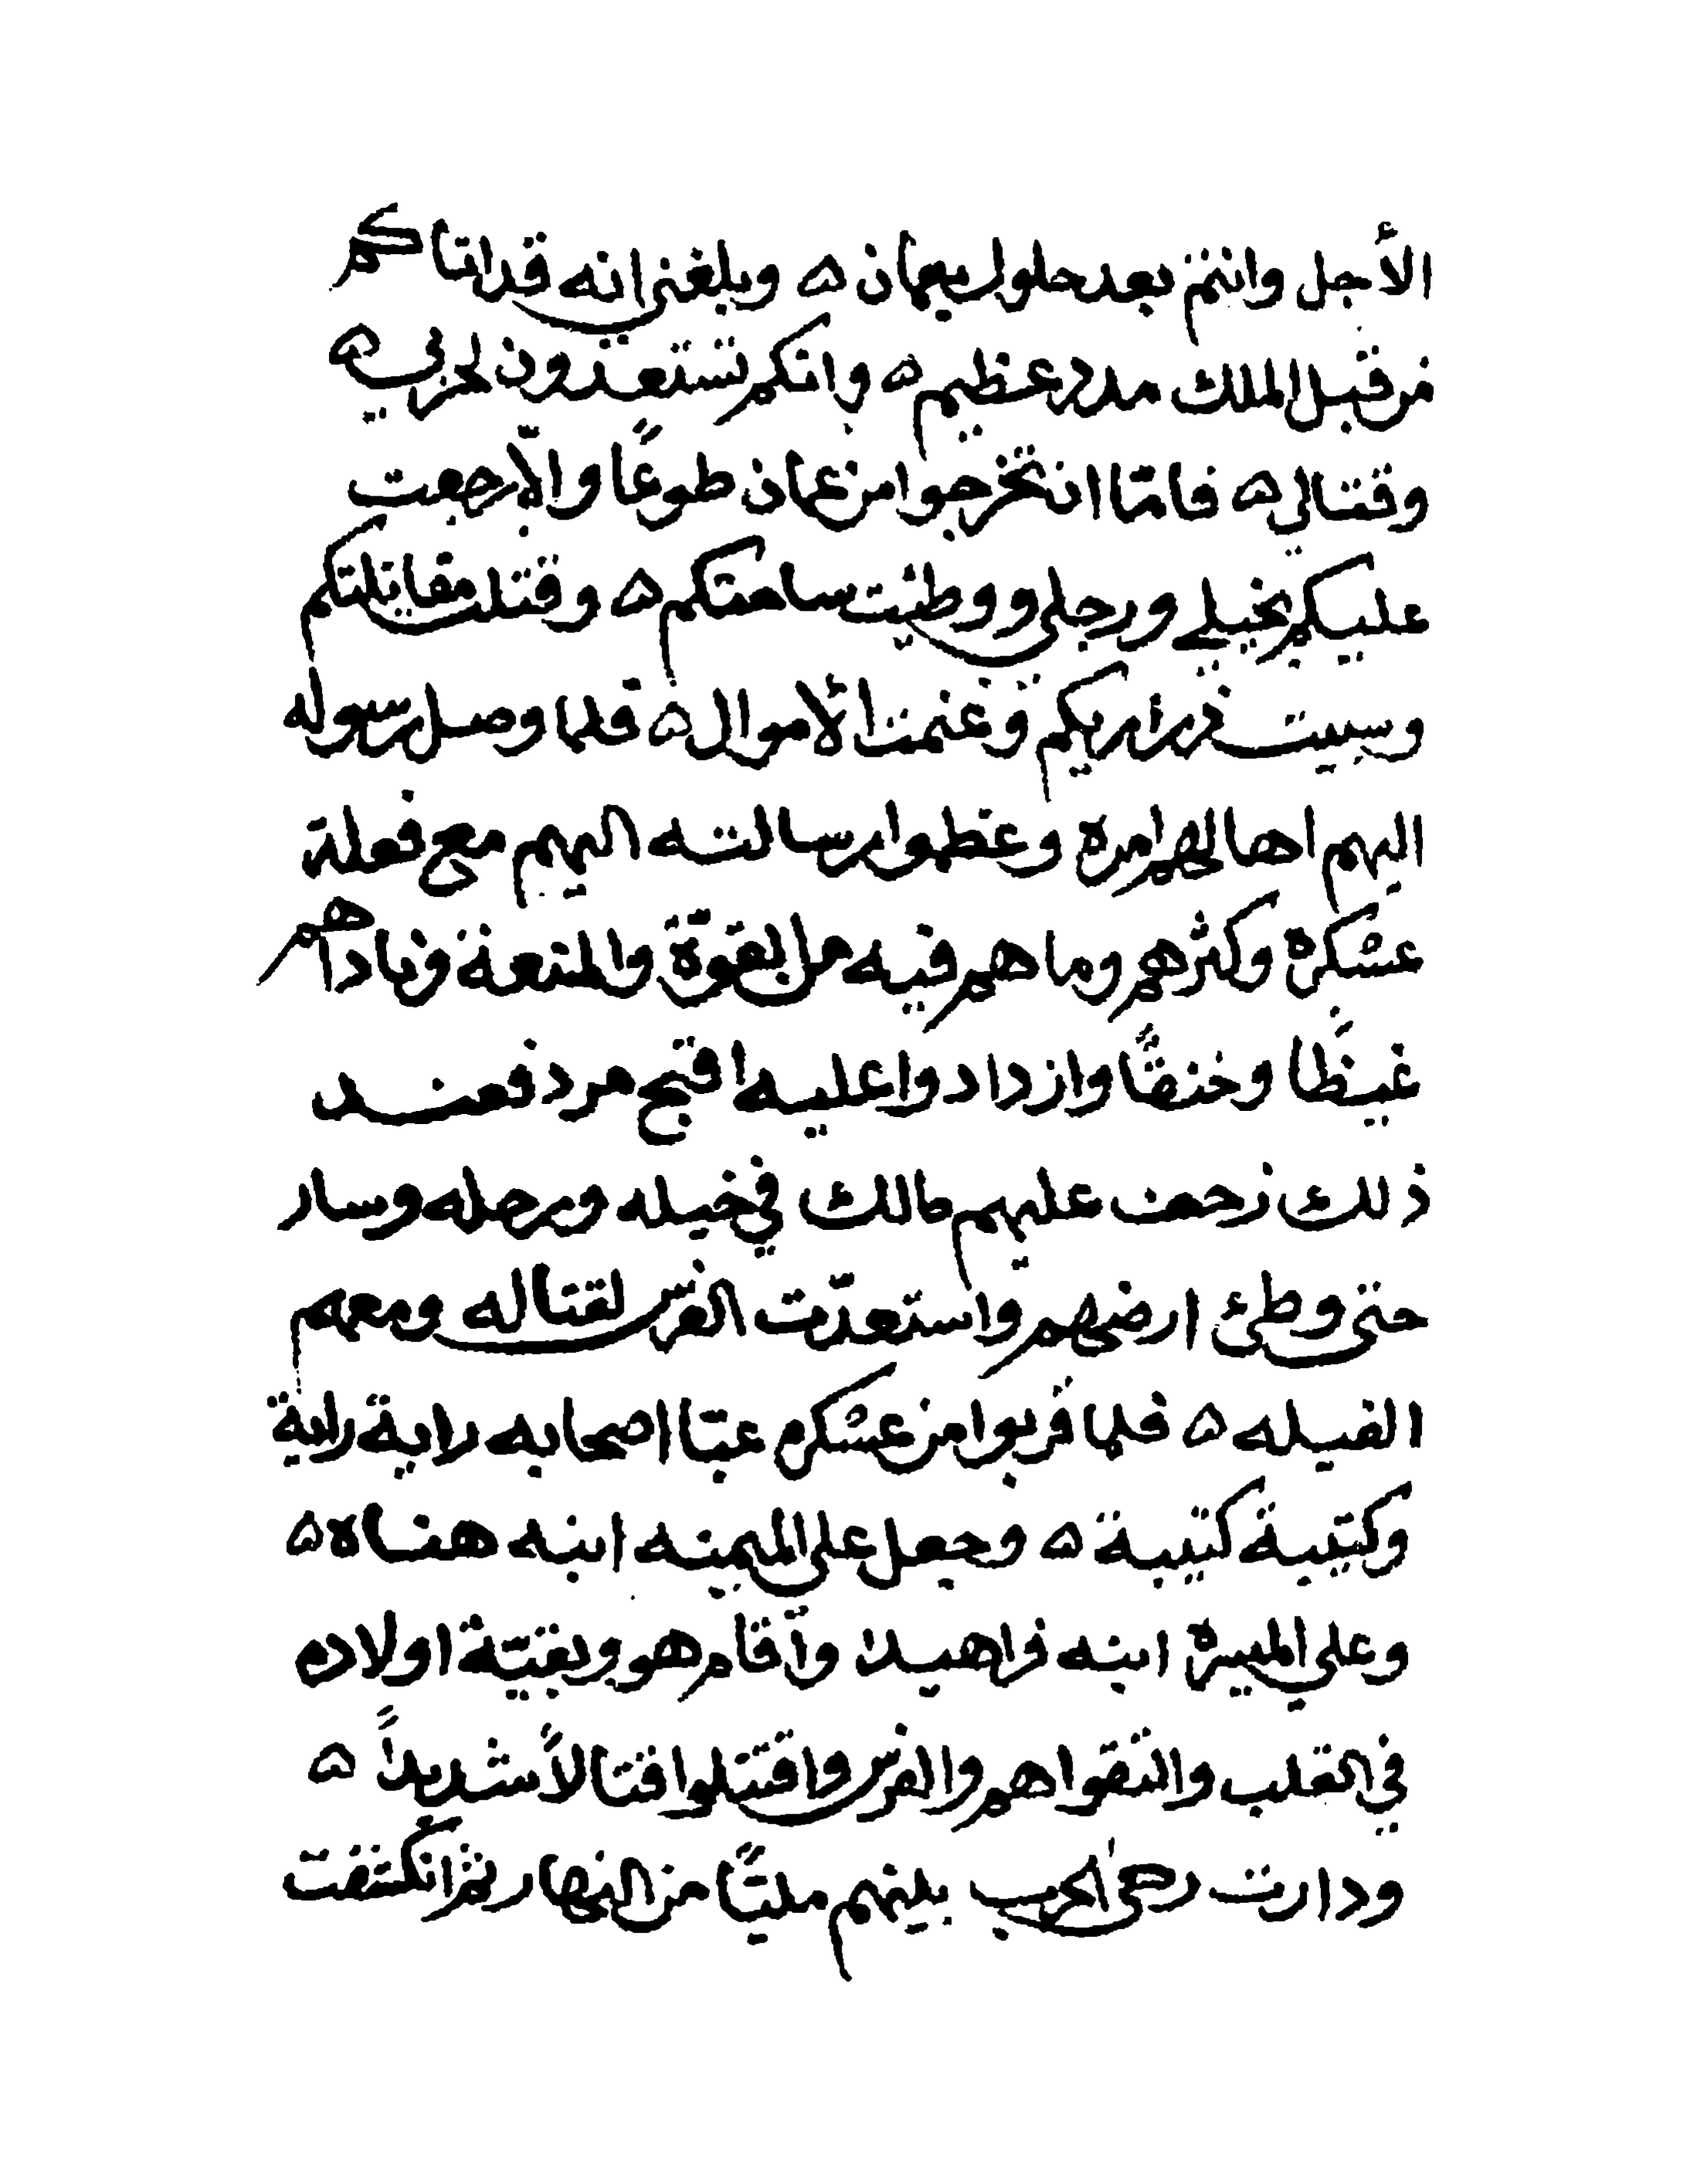 الأجل وانتم بعد حلول بعمان ۵ وبلغني انه قد اتاكم
من قبل الملك مدد عظيم ۵ وانكم تستعدون لحربي ۵
وقتالي ۵ فامّا ان تخرجوا من عمان طوعًا والّا رجعت
عليكم بخيلي ورجلي ووطئت ساحتكم ۵ وقتلت مقاتلتكم
وسبيت ذراريكم وغنمت الأموال ۵ فلما وصل رسوله
اليهم اهالهم امره وعظموا رسالته اليهم مع قلة
عسكره وكثرهم وما هم فيه من القوّة والمنعة وزادهم
غيظًا وحنقًا وازدادوا عليه اقبح مرد فعند
ذلك زحف عليهم مالك في خيله ورجله وسار
حتى وطئ ارضهم واستعدّت الفرس لقتاله ومعهم
الفيله ۵ فلما قربوا من عسكره عبّا اصحابه راية راية
وكتيبة كتيبة ۵ وجعل على الميمنه ابنه هناه ۵
وعلى الميسرة ابنه فراهيدا وأقام هو وبقيّة اولاده
في القلب والتقوا هم والفرس واقتتلوا قتالاً شديداً ۵
ودارت رحى الحرب بينهم مليًّا من النهار ثم انكشفت